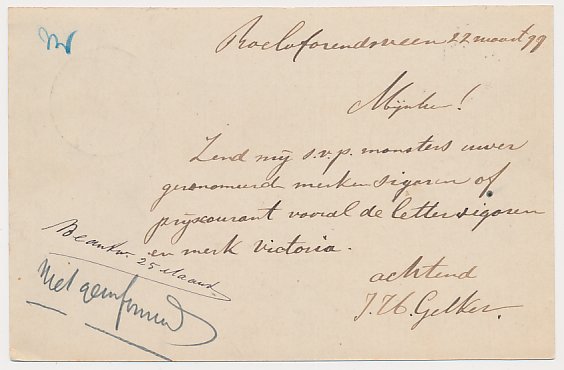 Roelofarendsveen 22 maart 99
Mijnheer!
Zend mij s.v.p. monsters uwer
gerenomeerd merken sigaren of
prijscourant vooral de letter sigaren
en merk Victoria.
achtend
Beantw. 25 Maart
niet geinformeerd